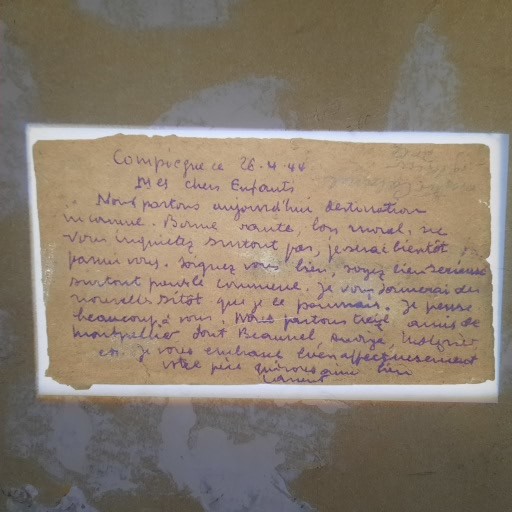 Compiegne ce 26-4-44
Mes chers Enfants
Nous partons aujourd'hui destination
inconnue. Bonne sante, bon moral, ne
vous inquietez surtout pas, je serai bientôt
parmi vous. Soignez vous bien, soyez bien serieuse
surtout pour le commerce. Je vous donnerai des
nouvelles sitôt que je le pourrais. Je pense
beaucoup à vous Nous partons treize amis de
Montpellier dont Beaumel,
Je vous embrasse bien affectueusement
votre père qui vous aime bien